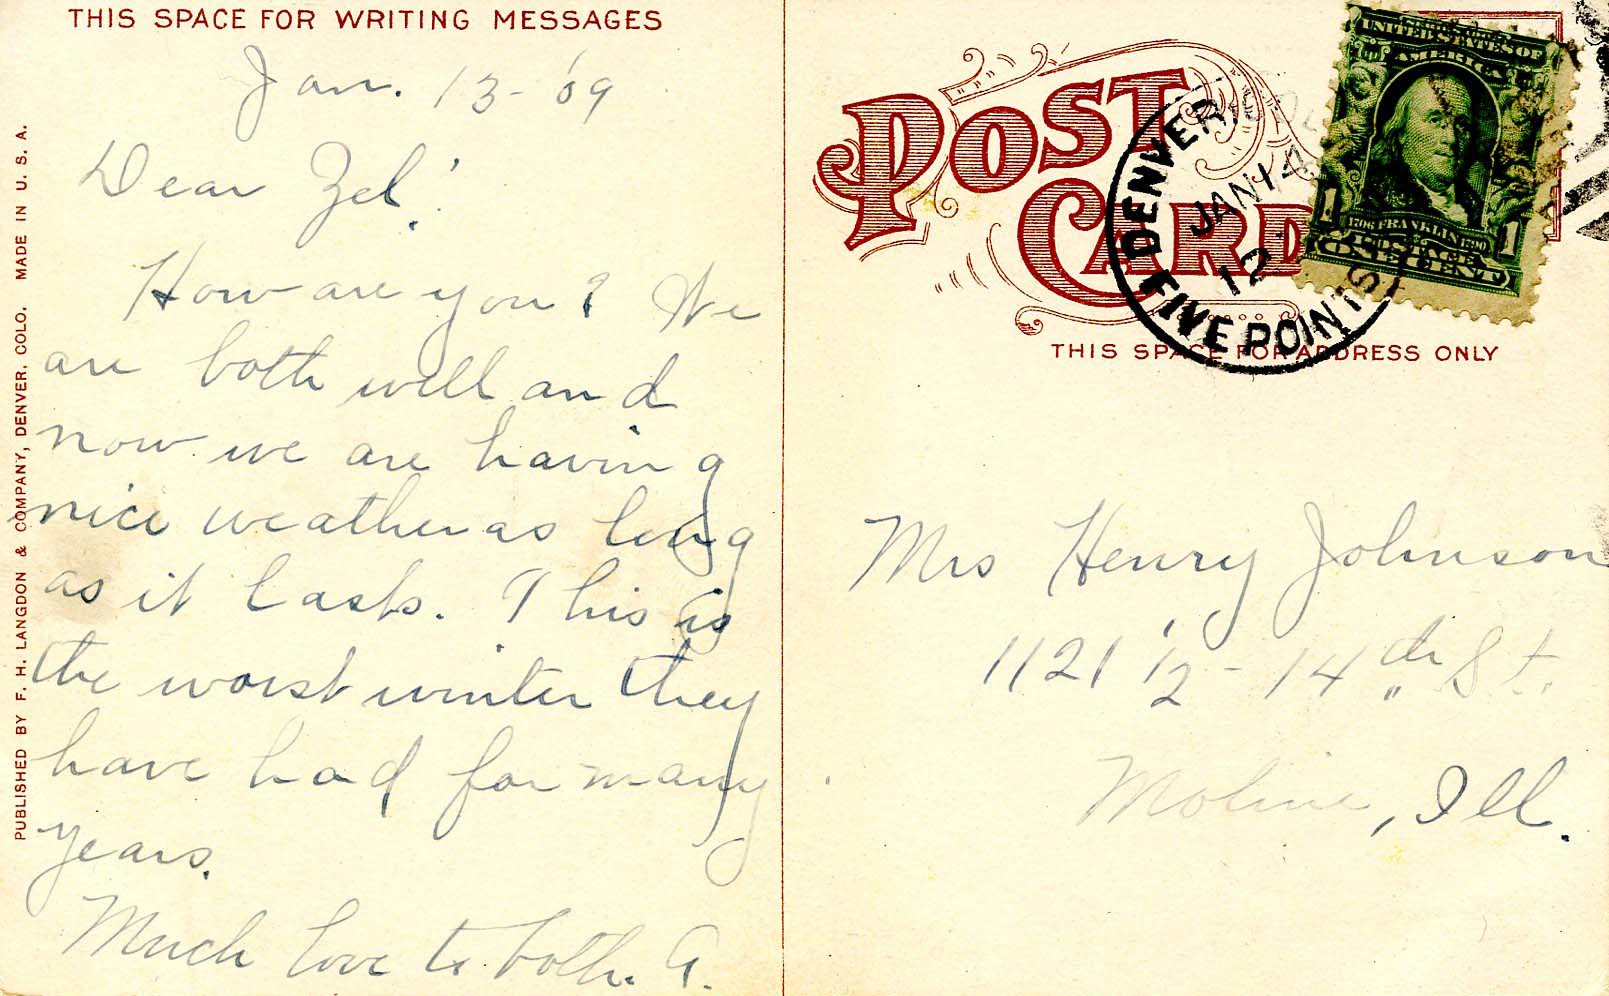 THIS SPACE FOR WRITING MESSAGES
Jan. 13-'09
Dear Zel!
How are you? We
are both well and
now we are having
nice weather as long
as it lasts. This is
the worst winter they
have had for many
years.
Much love to both. A.
PUBLISHED BY F. H. LANGDON & COMPANY, DENVER, COLO. MADE IN U. S. A.
POST
CARD
THIS SPACE FOR ADDRESS ONLY
DENVER COLO
JAN 14
12
FIVE POINTS
UNITED STATES OF
AMERICA
1706 FRANKLIN 1790
1 POSTAGE 1
ONE CENT
Mrs Henry Johnson
1121 1/2 - 14th St.
Moline, Ill.